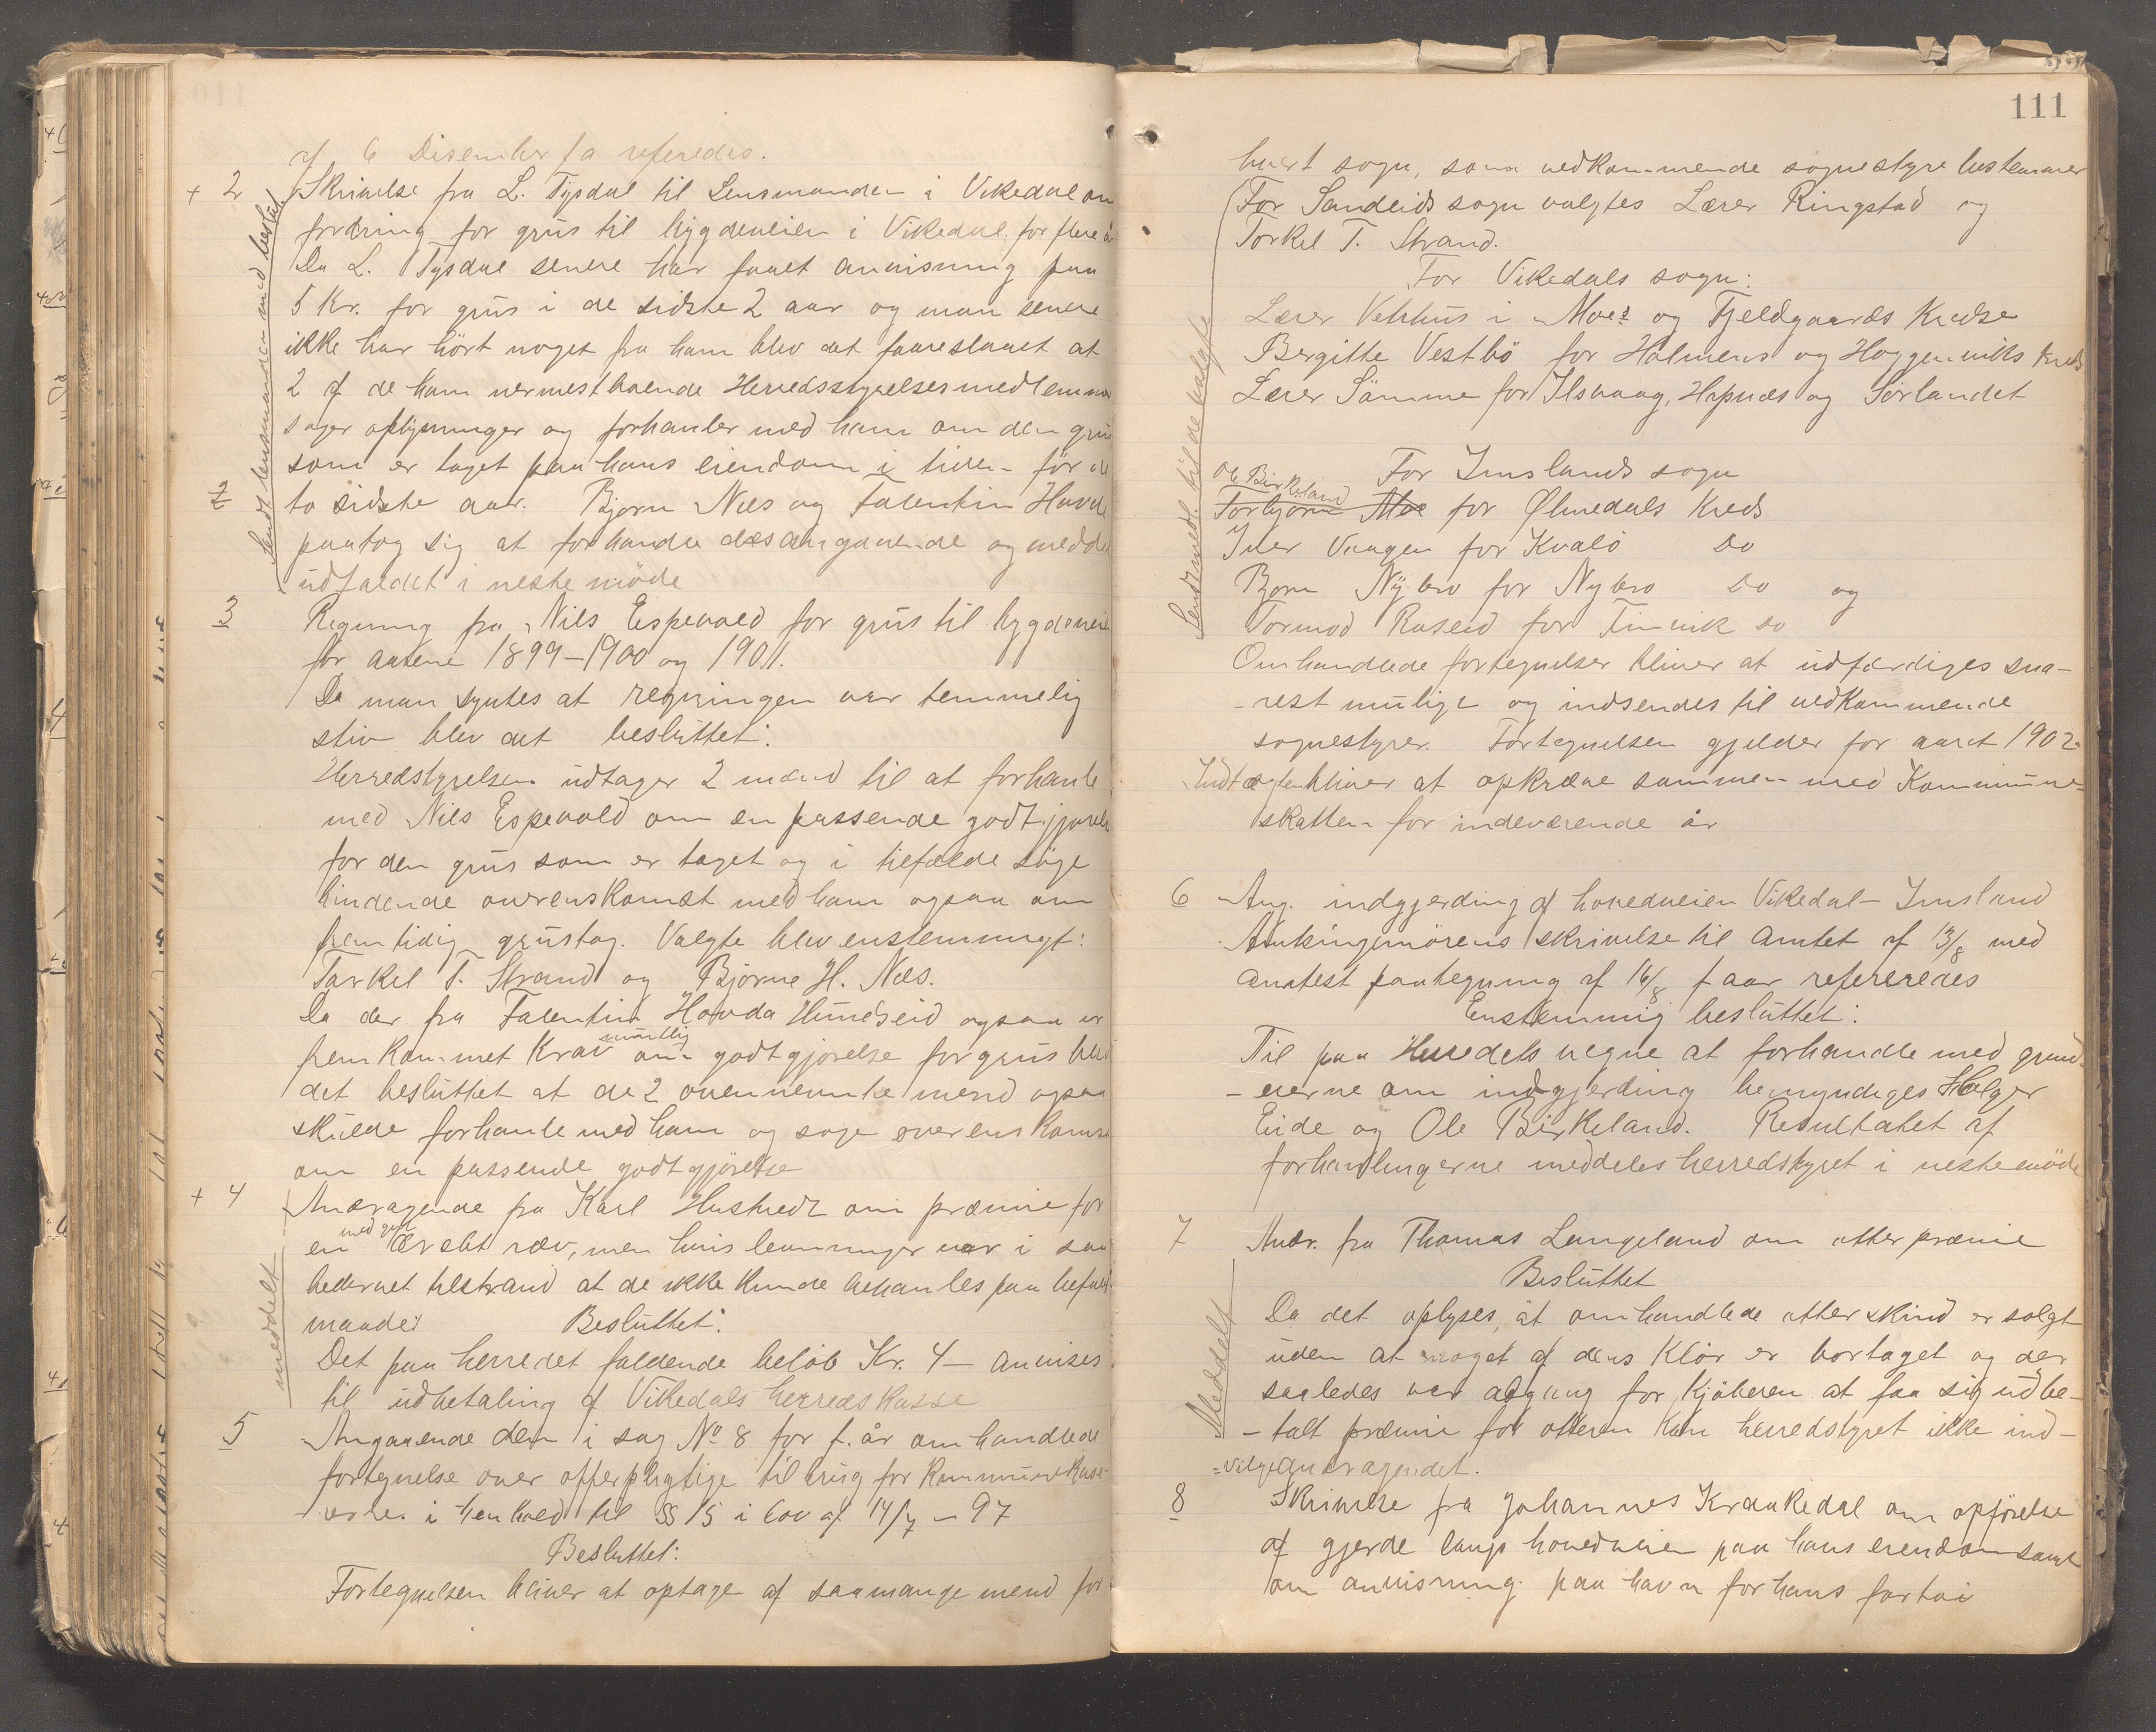 af 6 Disember f a referedes.
+ 2 Skrivelse fra L. Tysdal til Lensmanden i Vikedal om
fordring for grus til bygdeveien i Vikedal for flere år
Da L. Tysdal senere har faaet anvisning paa
5 Kr. for grus i de sidste 2 aar og man senere
ikke har hört noget fra ham blev det faareslaaet at
2 af de ham nermest boende Herredsstyrelsesmedlemmer
søger oplysninger og forhanler med ham om den grus
som er taget paa hans eiendom i tiden för de
2 to sidste aar. Bjørn Næs og Falentin Hovda
paatog sig at forhandle desangaaende og meddele
udfaldet i neste möde
Sendt lensmanden med bestal.
3 Regning fra Nils Espevold for grus til bygdeveien
for aarene 1899-1900 og 1901.
Da man syntes at regningen var temmelig
stiv blev det besluttet:
Herredstyrelsen udtager 2 mænd til at forhanle
med Nils Espevold om en passende godtgjørelse
for den grus som er taget og i tilfælde søge
bindende overenskomst med ham ogsaa om
fremtidig grustag. Valgte blev enstemmigt:
Tarkel T. Strand og Bjørne H. Næs.
Da der fra Falentin Hovda Hundseid ogsaa er
fremkommet Krav muntlig om godtgjørelse for grus blev
det besluttet at de 2 ovennevnte mend ogsaa
skulde forhanle med ham og søge overenskomst
om en passende godtgjörelse
+ 4 Andragende fra Karl Hustredt om præmie for
en med gift dræbt ræv, men hvis levninger var i saa
bedervet tilstand at de ikke kunde behanles paa befalet
maade: Besluttet:
Det paa herredet faldende belöb Kr. 4 — anvises
til udbetaling af Vikedals herredskasse
meddelt
5 Angaaende den i sag No 8 for f. år omhandlede
fortegnelse over offerpligtige til brug for Kommunekass-
ereren i Henhold til §§ 15 i lov af 14/7 - 97
Besluttet:
Fortegnelsen bliver at optage af saamange mend for
111
hvert sogn, som vedkommende sognestyre bestemmer
For Sandeids sogn valgtes Lærer Ringstad og
Torkel T. Strand.
For Vikedals sogn:
Lærer Vetrhus i Moes og Fjeldgaards Kredse
Bergitte Vestbö for Holmens og Hoggenviks Kreds
Lærer Sömme for Ilsvaag, Hapnæs og Sørlandet
For Imslands sogn
Ole Birkeland
Torbjørn Moe for Ølmedals Kreds
Iver Vaagen for Kvalö Do
Bjørn Nÿbro for Nybro Do og
Tormod Raseid for Finvik do
Sendt meld. til de valgte
Omhandlede fortegnelser bliver at udfærdiges sna-
-rest mulige og indsendes til vedkommende
sognestyrer. Fortegnelsen gjelder for aaret 1902.
Indtægten bliver at opkræve sammen med Kommune-
skatten for indeværende år
6 Ang. indgjerding af hovedveien Vikedal - Imsland
Amtsingeniörens skrivelse til Amtet af 13/8 med
amtest paategning af 16/8 f aar refereredes
Enstemmig besluttet:
Til paa Herredets vegne at forhandle med grund-
-eierne om indgjerding bemyndiges Holger
Eide og Ole Birkeland. Resultatet af
forhanlingerne meddeles herredstyret i neste möde
7 Andr. fra Thomas Langeland om otterpræmie
Besluttet
Da det oplyses, at omhandlede otterskind er solgt
uden at noget af dens Klör er bortaget og der
saaledes var adgang for Kjöberen at faa sig udbe-
-talt præmie for otteren kan herredstyret ikke ind-
=vilge andragendet.
Meddelt
8 Skrivelse fra Johannes Kraakedal om opförelse
af gjerde langs hovedveien paa hans eiendom samt
om anvisning paa havn for hans fartöi